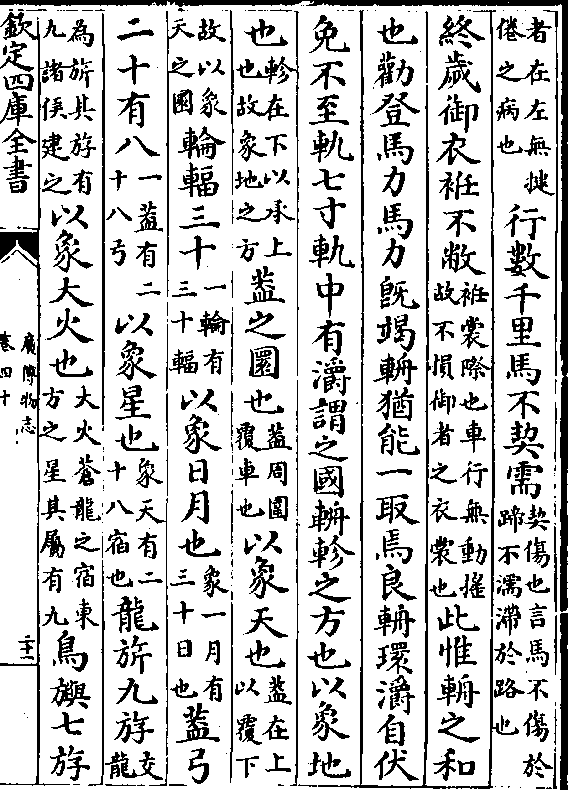 者在左無揵倦之病也行數千里馬不契需契傷也言馬不傷於蹄不濡滯於路也
終歲御衣衽不敝衽裳際也車行無動揺故不損御者之衣裳也此惟輈之和
也勸登馬力馬力既竭輈猶能一取焉良輈環灂自伏
免不至軌七寸軌中有灂謂之國輈軫之方也以象地
也軫在下以承上也故象地之方葢之圜也葢周圜覆車也以象天也葢在上以覆下
故以象天之圜輪輻三十一輪有三十輻以象日月也象一月有三十日也葢弓
二十有八一葢有二十八弓以象星也象天有二十八宿也龍旂九斿交龍
為旂其斿有九諸侯建之以象大火也大火蒼龍之宿東方之星其屬有九鳥旟七斿
欽定四庫全書
廣博物志
卷四十